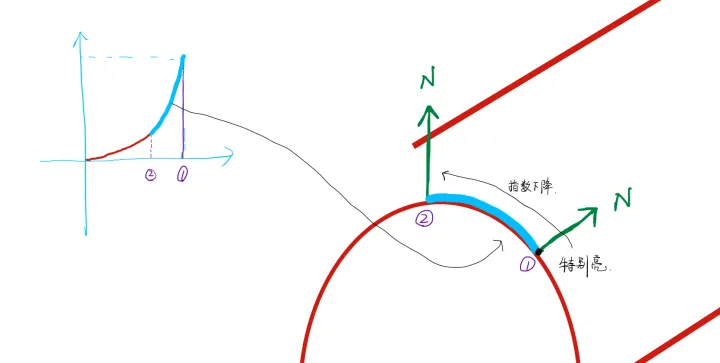 ② ①
N
N
指数下降.
② ①
特别亮.